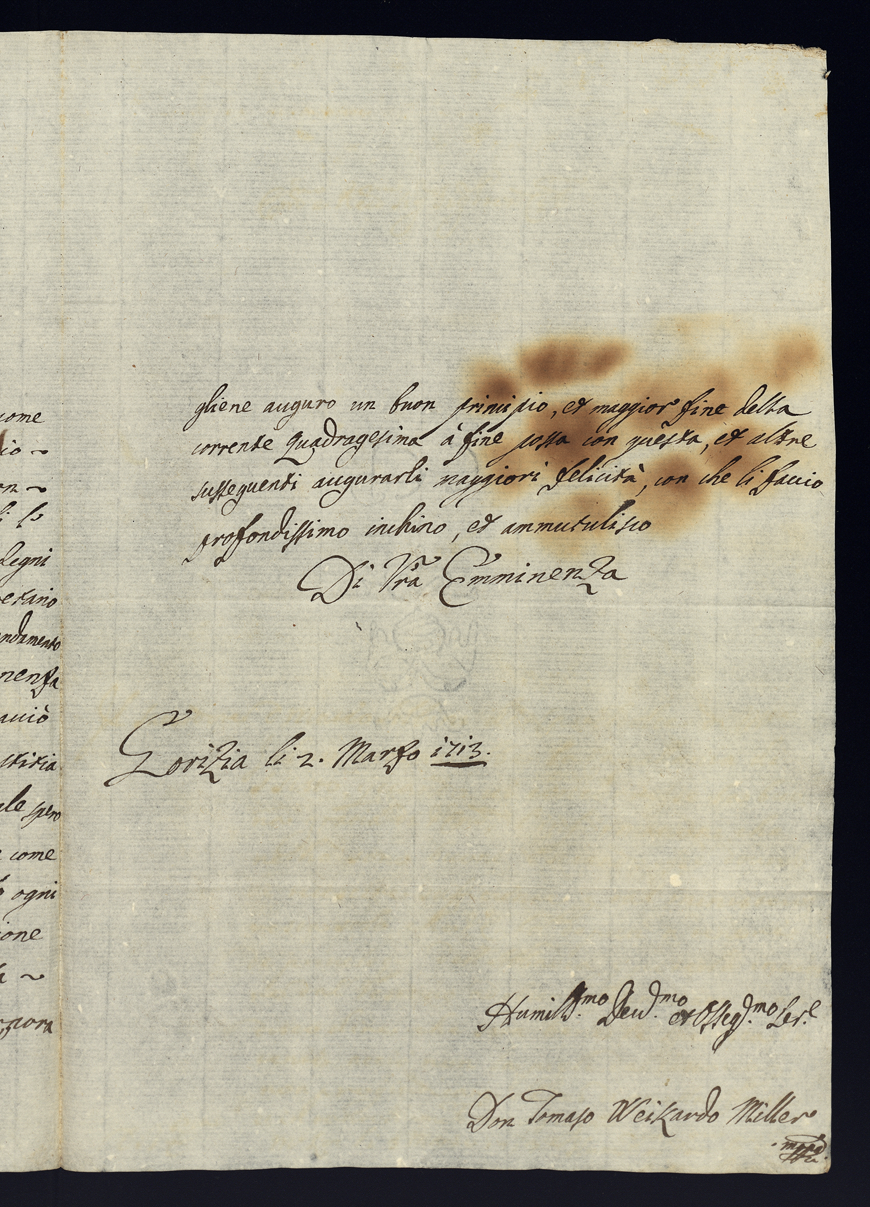 come
io ~
on ~
li
legni
etano
ndamento
nenza
acciò
stitia
ale spero
come
ogni
ione
~
ncora
gliene auguro un buon principio, et maggior fine della
corrente Quadragesima à fine possa con questa, et altre
susseguenti augurarli maggiori felicità, con che li faccio
profondissimo inchino, et ammutulisco
Di Vra Emminenza
Gorizia li 2. Marzo 1713.
Humiliss.mo Deu.mo et Osseq.mo Ser.e
Don Tomaso Weikardo Miller
mppa